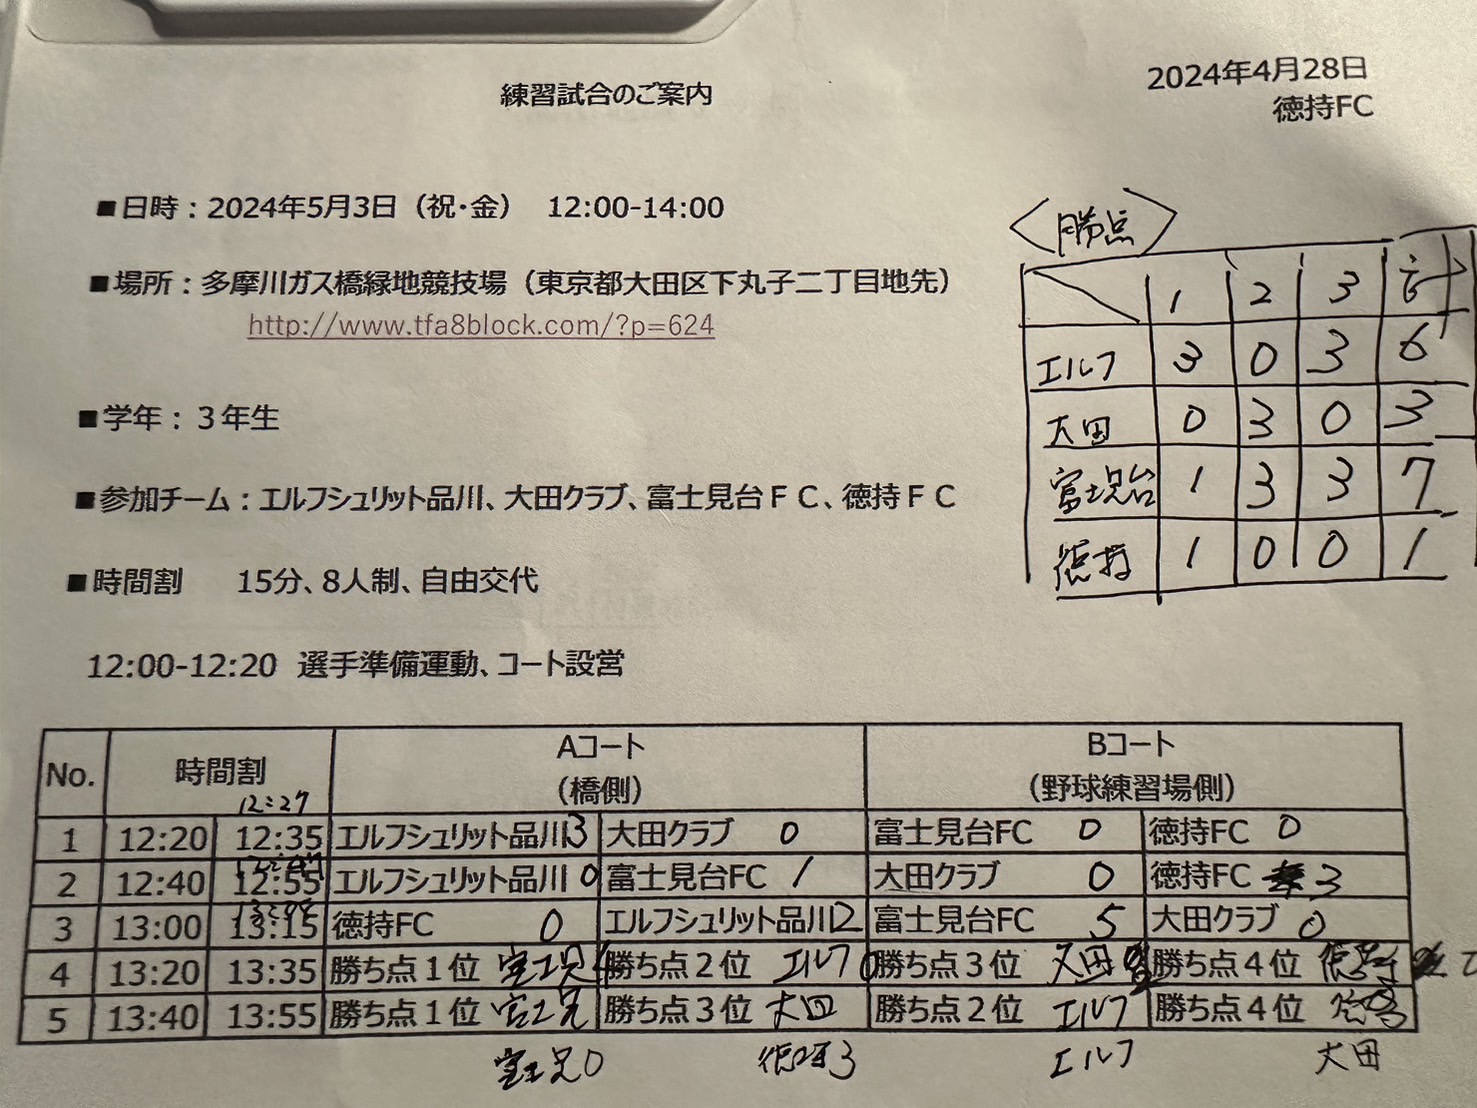 練習試合のご案内
2024年4月28日
徳持FC
■日時：2024年5月3日（祝・金） 12:00-14:00
■場所：多摩川ガス橋緑地競技場（東京都大田区下丸子二丁目地先）
http://www.tfa8block.com/?p=624
■学年：３年生
■参加チーム：エルフシュリット品川、大田クラブ、富士見台ＦＣ、徳持ＦＣ
■時間割 15分、8人制、自由交代
12:00-12:20 選手準備運動、コート設営
〈勝点〉
1 2 3 計
エルフ 3 0 3 6
大田 0 3 0 3
富士見台 1 3 3 7
徳持 1 0 0 1
No. 時間割 Aコート Bコート
（橋側） （野球練習場側）
12:27
1 12:20 12:35 エルフシュリット品川 3 大田クラブ 0 富士見台FC 0 徳持FC 0
2 12:40 12:55 エルフシュリット品川 0 富士見台FC 1 大田クラブ 0 徳持FC 3
3 13:00 13:15 徳持FC 0 エルフシュリット品川 2 富士見台FC 5 大田クラブ 0
4 13:20 13:35 勝ち点１位 富士見 勝ち点２位 エルフ 0 勝ち点３位 大田 勝ち点４位 徳持
5 13:40 13:55 勝ち点１位 富士見 勝ち点３位 大田 勝ち点２位 エルフ 勝ち点４位 徳持
富士見 0 徳持 3 エルフ 大田